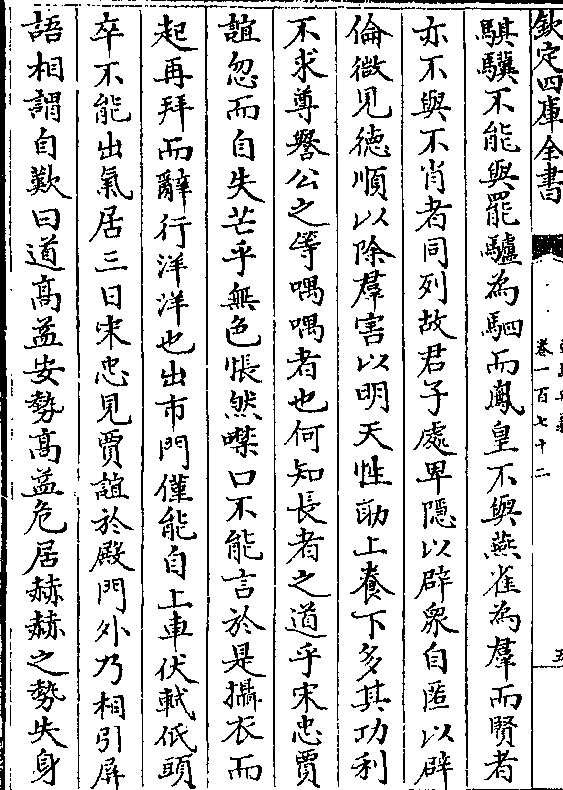 欽定四庫全書
卷一百七十二
五
騏驥不能與罷驢為駟而鳳皇不與燕雀為羣而賢者
亦不與不肖者同列故君子處卑隱以辟衆自匿以辟
倫微見德順以除羣害以明天性助上養下多其功利
不求尊譽公之等喁喁者也何知長者之道乎宋忠賈
誼忽而自失芒乎無色悵然噤口不能言於是攝衣而
起再拜而辭行洋洋也出市門僅能自上車伏軾低頭
卒不能出氣居三日宋忠見賈誼於殿門外乃相引屏
語相謂自歎曰道高益安勢高益危居赫赫之勢失身